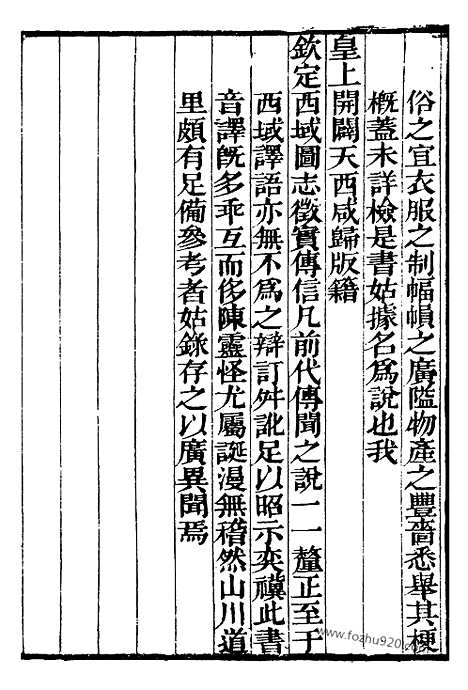 俗之宜衣服之制幅幀之廣隘物產之豐嗇悉舉其梗
概蓋未詳檢是書姑據名爲說也我
皇上開闢天西咸歸版籍
欽定西域圖志徵實傳信凡前代傳聞之說一一釐正至于
西域譯語亦無不爲之辯訂舛訛足以昭示奕禩此書
音譯旣多乖互而侈陳靈怪尤屬誕漫無稽然山川道
里頗有足備參考者姑錄存之以廣異聞焉
www.fozhu920.com